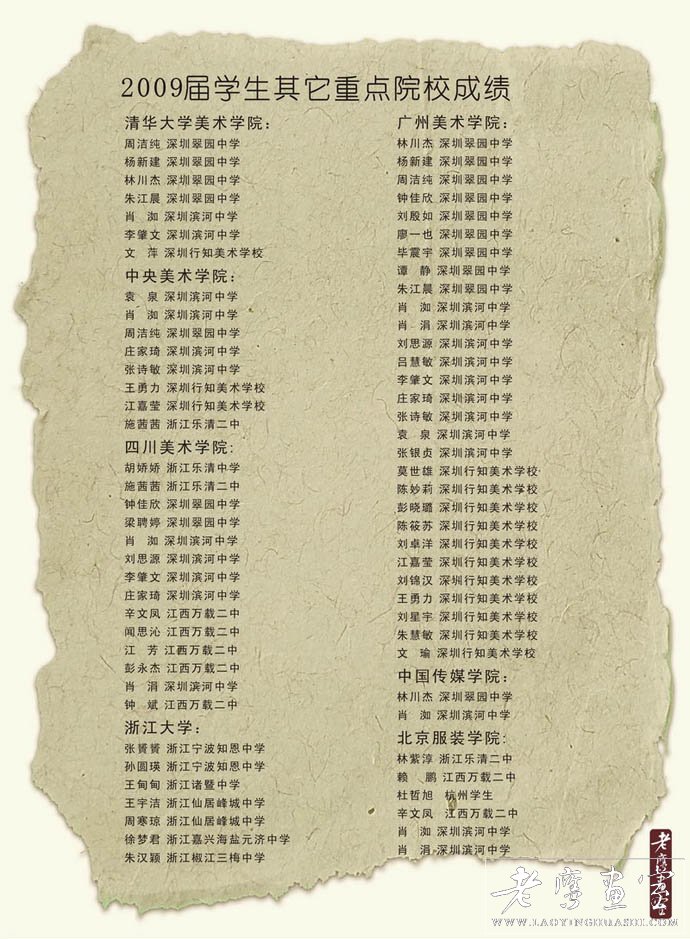 2009届学生其它重点院校成绩
清华大学美术学院：
周洁纯 深圳翠园中学
杨新建 深圳翠园中学
林川杰 深圳翠园中学
朱江晨 深圳翠园中学
肖 洳 深圳滨河中学
李肇文 深圳滨河中学
文 萍 深圳行知美术学校
中央美术学院：
袁 泉 深圳滨河中学
肖 洳 深圳滨河中学
周洁纯 深圳翠园中学
庄家琦 深圳滨河中学
张诗敏 深圳滨河中学
王勇力 深圳行知美术学校
江嘉莹 深圳行知美术学校
施茜茜 浙江乐清二中
四川美术学院:
胡娇娇 浙江乐清中学
施茜茜 浙江乐清二中
钟佳欣 深圳翠园中学
梁聘婷 深圳翠园中学
肖 洳 深圳滨河中学
刘思源 深圳滨河中学
李肇文 深圳滨河中学
庄家琦 深圳滨河中学
辛文凤 江西万载二中
闻思沁 江西万载二中
江 芳 江西万载二中
彭永杰 江西万载二中
肖 涓 深圳滨河中学
钟 斌 江西万载二中
浙江大学：
张赟赟 浙江宁波知恩中学
孙圆瑛 浙江宁波知恩中学
王甸甸 浙江诸暨中学
王宇洁 浙江仙居峰城中学
周寒琼 浙江仙居峰城中学
徐梦君 浙江嘉兴海盐元济中学
朱汉颖 浙江椒江三梅中学
广州美术学院：
林川杰 深圳翠园中学
杨新建 深圳翠园中学
周洁纯 深圳翠园中学
钟佳欣 深圳翠园中学
刘殷如 深圳翠园中学
廖一也 深圳翠园中学
毕震宇 深圳翠园中学
谭 静 深圳翠园中学
朱江晨 深圳翠园中学
肖 洳 深圳滨河中学
肖 涓 深圳滨河中学
刘思源 深圳滨河中学
吕慧敏 深圳滨河中学
李肇文 深圳滨河中学
庄家琦 深圳滨河中学
张诗敏 深圳滨河中学
袁 泉 深圳滨河中学
张银贞 深圳滨河中学
莫世雄 深圳行知美术学校
陈妙莉 深圳行知美术学校
彭晓璐 深圳行知美术学校
陈筱苏 深圳行知美术学校
刘卓洋 深圳行知美术学校
江嘉莹 深圳行知美术学校
刘锦汉 深圳行知美术学校
王勇力 深圳行知美术学校
刘星宇 深圳行知美术学校
朱慧敏 深圳行知美术学校
文 瑜 深圳行知美术学校
中国传媒学院：
林川杰 深圳翠园中学
肖 洳 深圳滨河中学
北京服装学院:
林紫淳 浙江乐清二中
赖 鹏 江西万载二中
杜哲旭 杭州学生
辛文凤 江西万载二中
肖 洳 深圳滨河中学
肖 涓 深圳滨河中学
老鹰画室
老鹰画室
WWW.LAOYINGHUASHI.COM